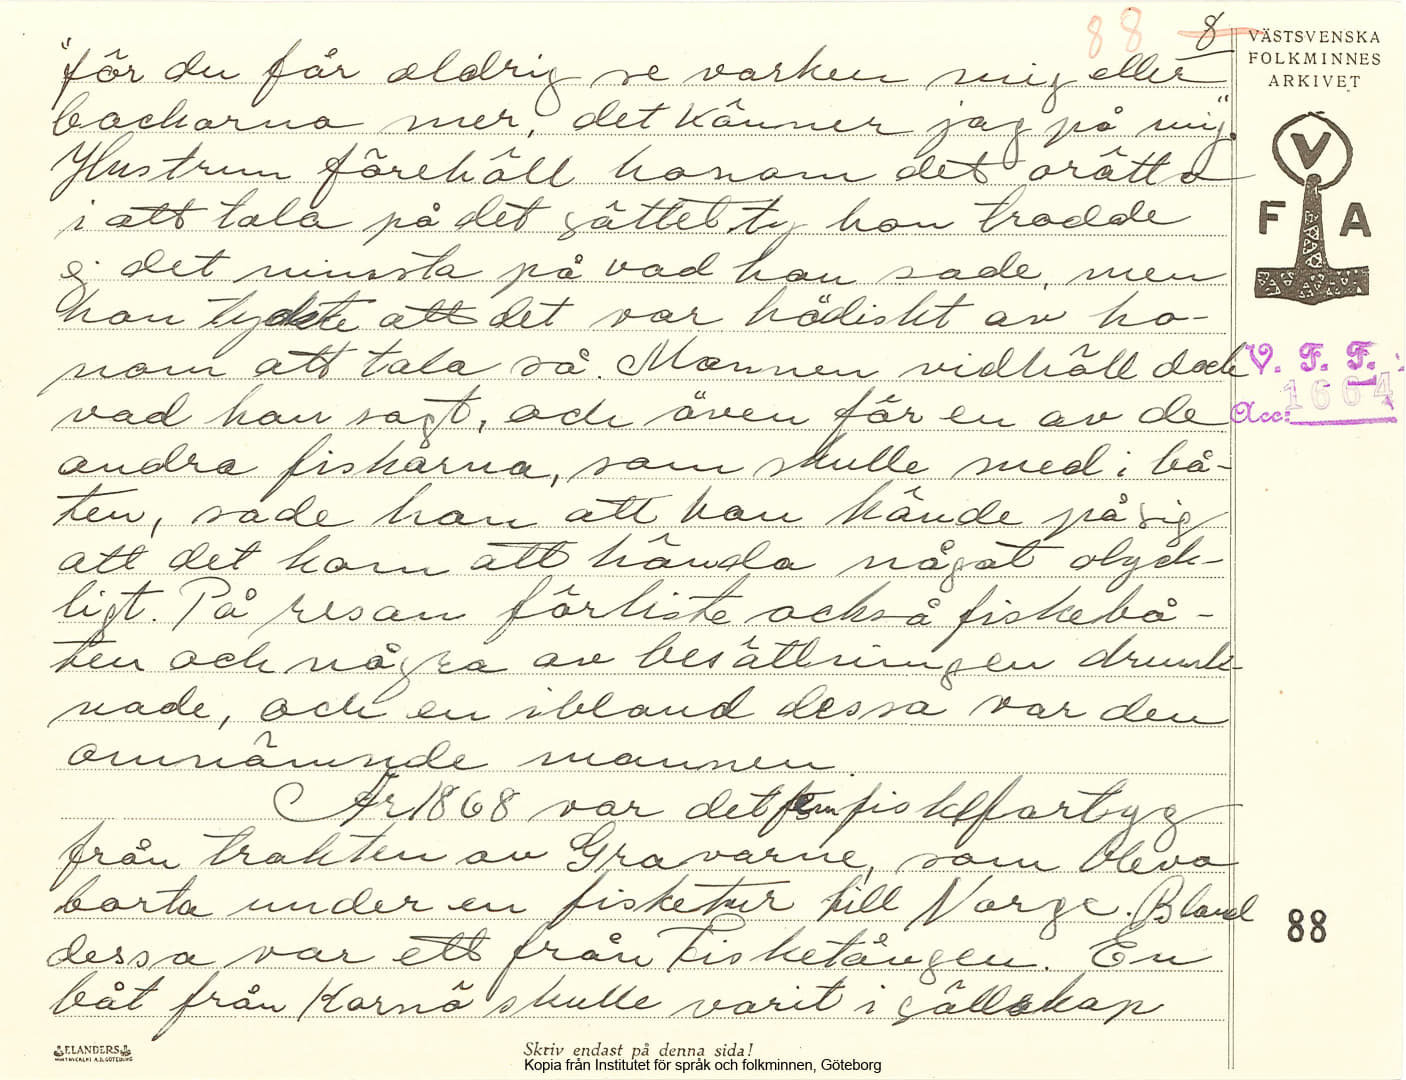 88 8
"för du får aldrig se varken mig eller
backarna mer, det känner jag på mig".
Hustrun förehöll honom det orätta
i att tala på det sättet, ty hon trodde
ej det minsta på vad han sade, men
hon tyckte att det var hädiskt av ho-
nom att tala så. Mannen vidhöll dock
vad han sagt, och även för en av de
andra fiskarna, som skulle med i bå-
ten, sade han att han kände på sig
att det kom att hända något olyck-
ligt. På resan förliste också fiskebå-
ten och några av besättningen drunk-
nade, och en ibland dessa var den
omnämnde mannen.
År 1868 var det fem fiskefartyg
från trakten av Gravarne, som blevo
borta under en fisketur till Norge. Bland
dessa var ett från Fisketången. En
båt från Kornö skulle varit i sällskap
VÄSTSVENSKA
FOLKMINNES
ARKIVET
V
F A
V. F. F.
Acc: 1664
88
ELANDERS
Skriv endast på denna sida!
Kopia från Institutet för språk och folkminnen, Göteborg